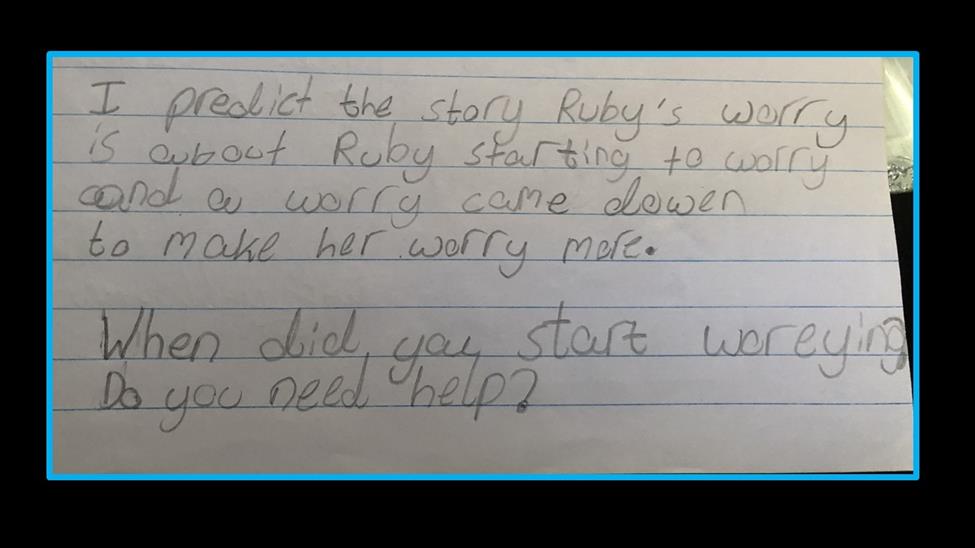 I predict the story Ruby's worry
is about Ruby starting to worry
and a worry came dowen
to make her worry more.
When did you start woreying
Do you need help?